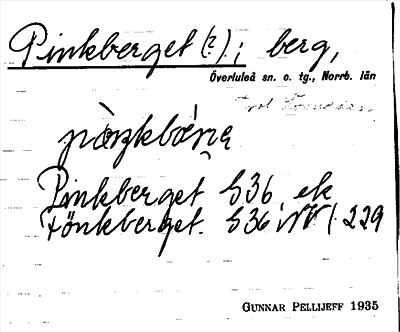 Pinkberget (?); berg,
Överluleå sn. o. tg., Norrb. län
Pinkberget S36 ek
Fönkberget. S36 NV 1 229
GUNNAR PELLIJEFF 1935